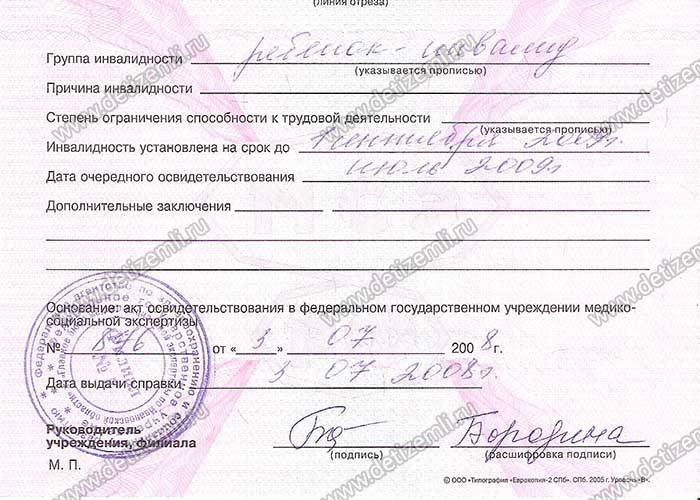 (линия отреза)
Группа инвалидности ребенок-инвалид
(указывается прописью)
Причина инвалидности
Степень ограничения способности к трудовой деятельности
(указывается прописью)
Инвалидность установлена на срок до 1 сентября 2009г.
Дата очередного освидетельствования июль 2009г
Дополнительные заключения
Основание: акт освидетельствования в федеральном государственном учреждении медико-
социальной экспертизы
№ от « 3 » 07 2008 г.
Дата выдачи справки 3 07 2008г.
Руководитель
учреждения, филиала Бородина
(подпись) (расшифровка подписи)
М. П.
© ООО «Типография «Еврокопия-2 СПб». СПб. 2005 г. Уровень «В».
www.detizemli.ru